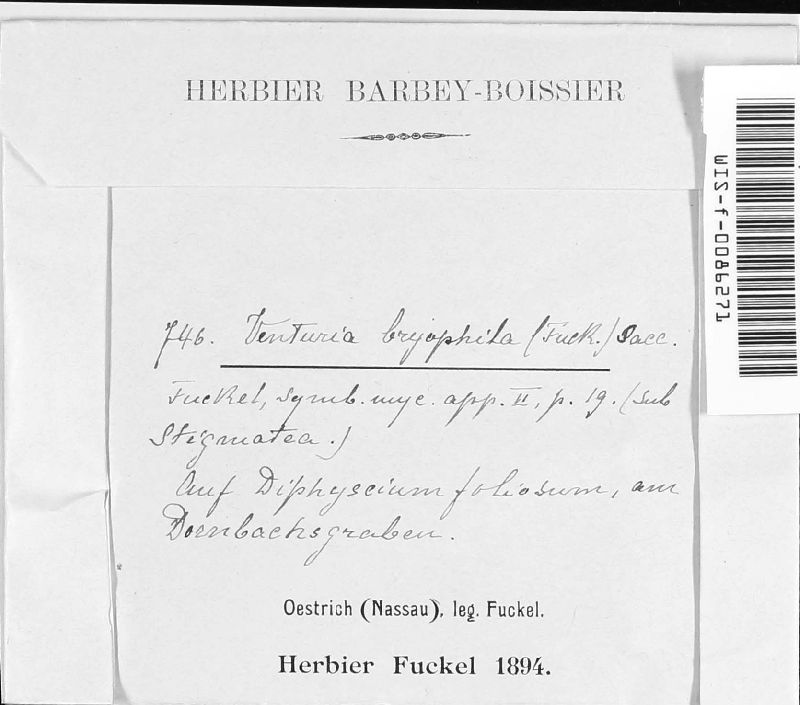 HERBIER BARBEY-BOISSIER
WIS-f-0086271
746. Venturia bryophila (Fuck.) Sacc.
Fuckel, symb. myc. app. II, p. 19. (sub
Stigmatea.)
Auf Diphyscium foliosum, am
Dornbachsgraben.
Oestrich (Nassau), leg. Fuckel.
Herbier Fuckel 1894.